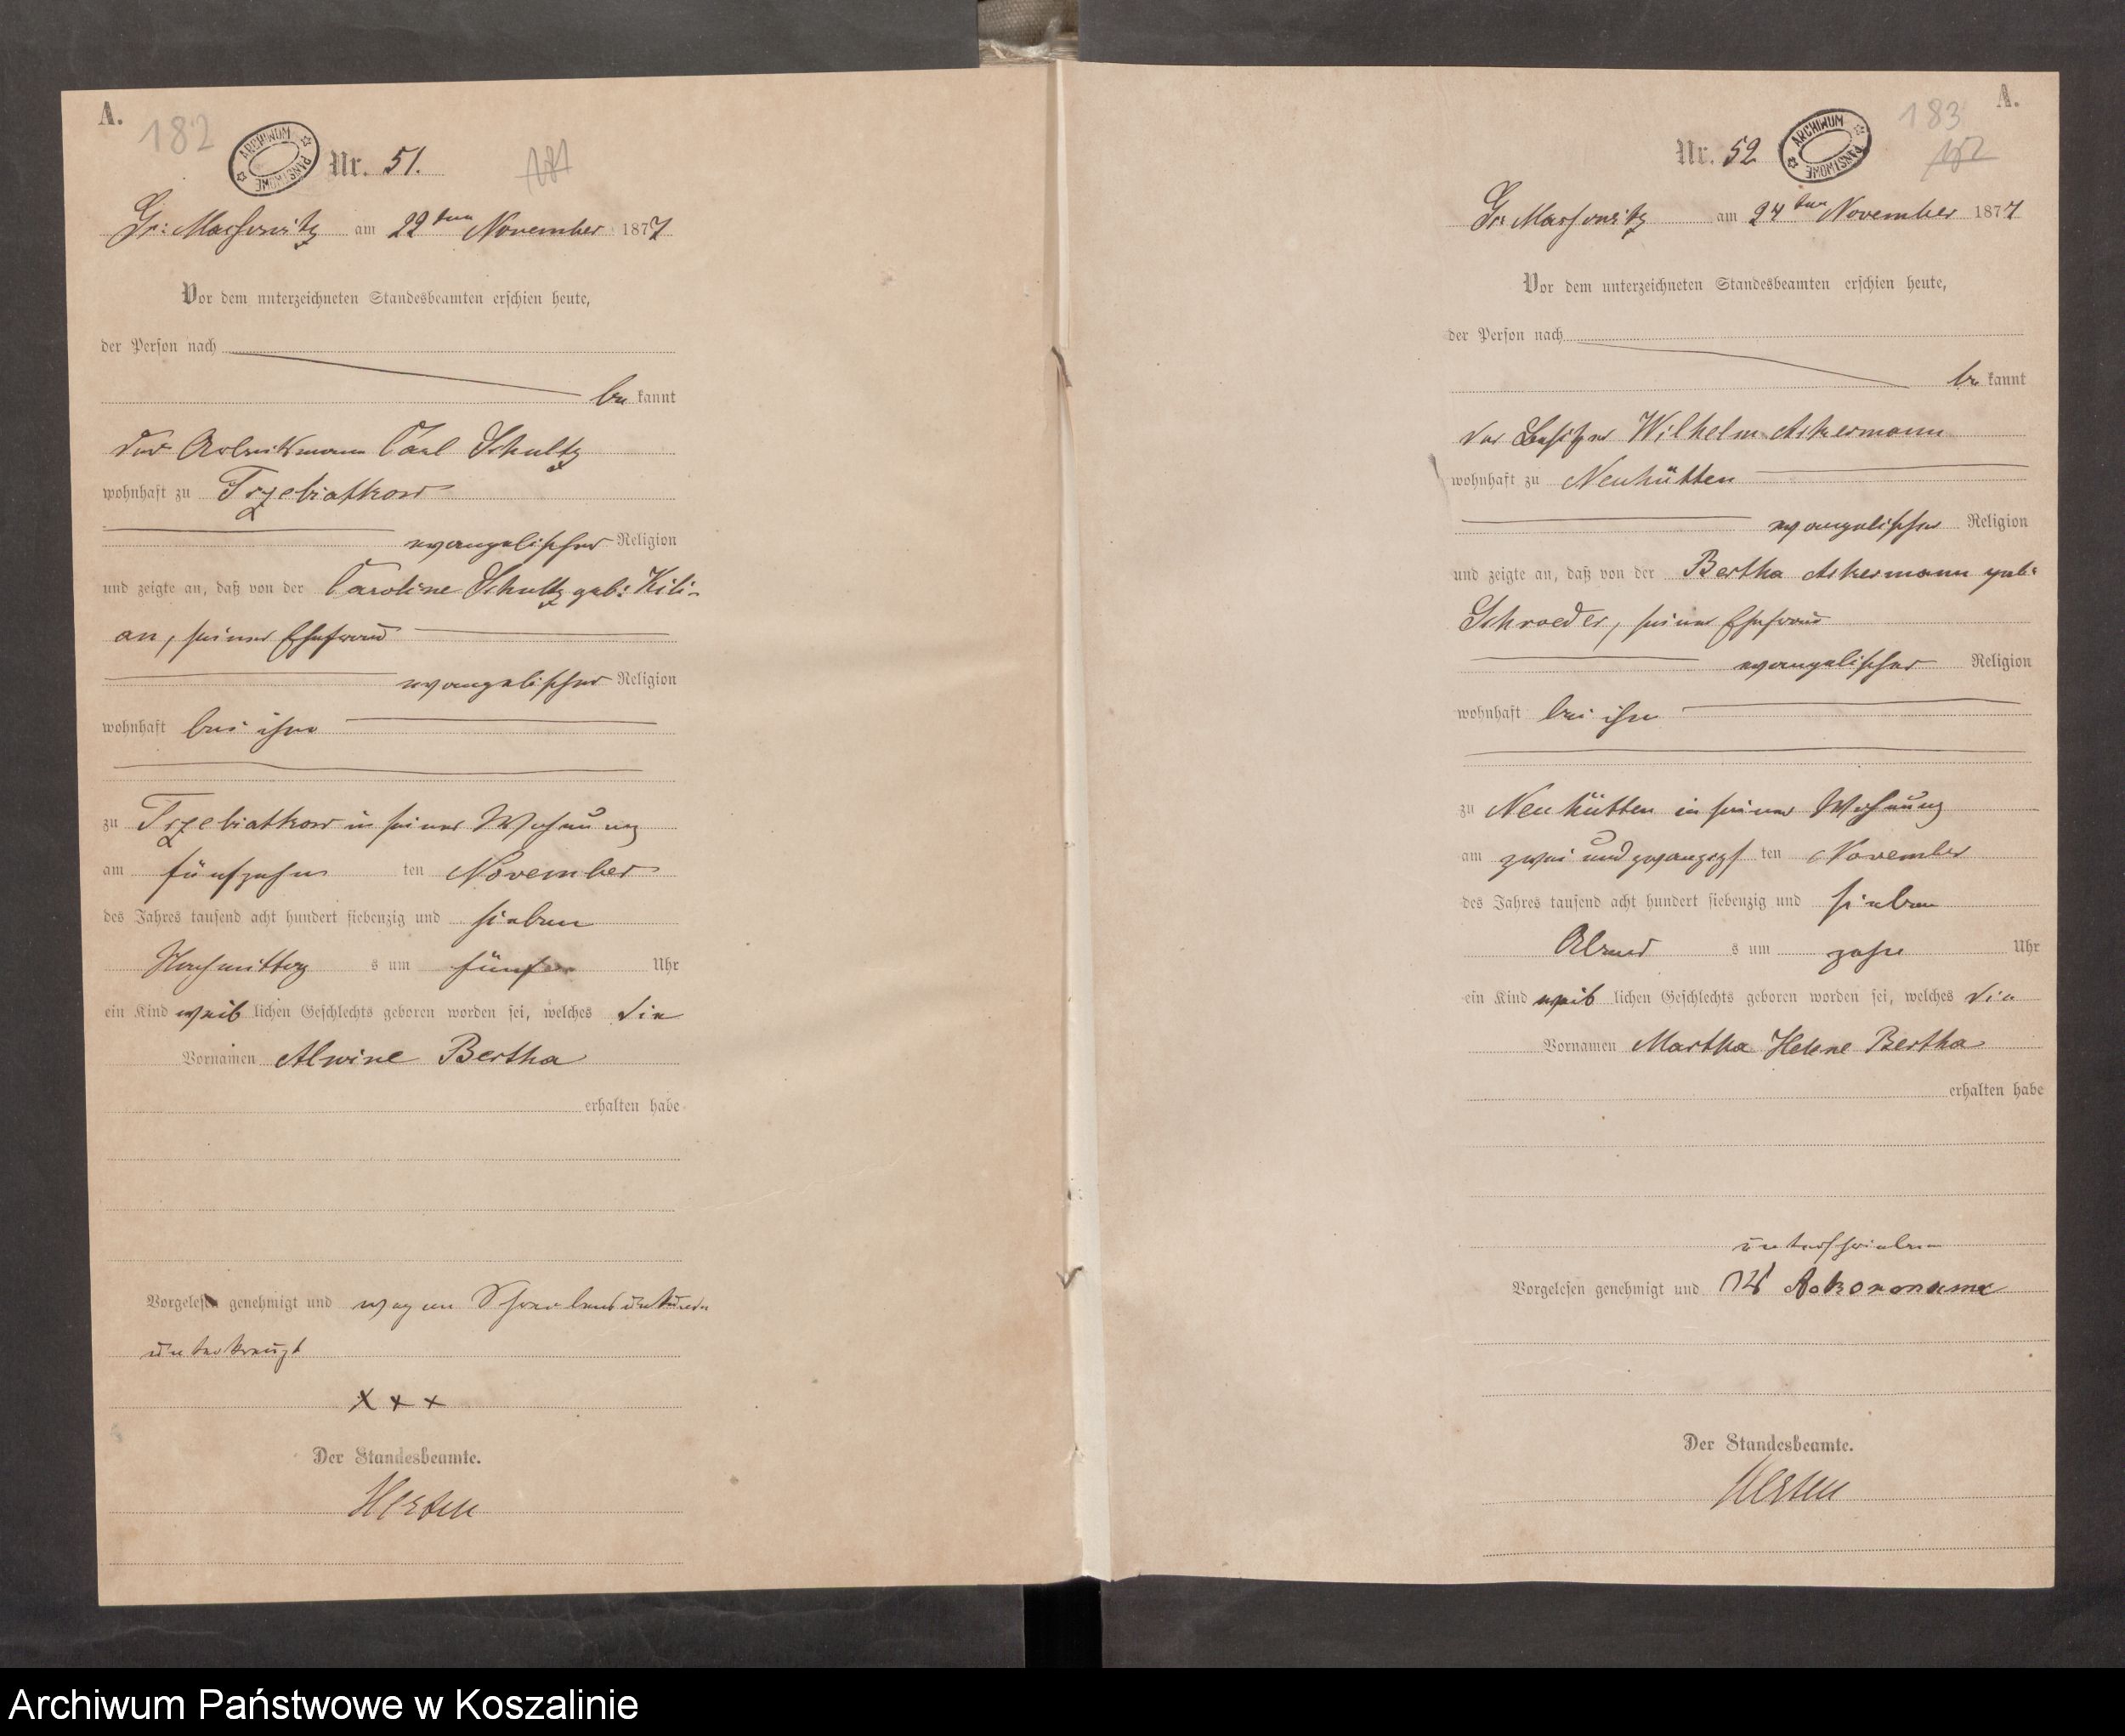 A.
182
ARCHIWUM PAŃSTWOWE
Nr. 51.
181
Gr: Massowitz am 22ten November 1877
Vor dem unterzeichneten Standesbeamten erschien heute,
der Person nach
be kannt
der Arbeitsmann Carl Schultz
wohnhaft zu Trzebiatkow
evangelischer Religion
und zeigte an, daß von der Caroline Schultz geb: Kili-
an, seiner Ehefrau
evangelischer Religion
wohnhaft bei ihm
zu Trzebiatkow in seiner Wohnung
am fünfzehn ten November
des Jahres tausend acht hundert siebenzig und sieben
Nachmittag s um fünf Uhr
ein Kind weib lichen Geschlechts geboren worden sei, welches die
Vornamen Alwine Bertha
erhalten habe
Vorgelesen genehmigt und wegen Schreibensunkunde
unterkreuzt
X X X
Der Standesbeamte.
A.
183
Nr. 52
ARCHIWUM PAŃSTWOWE
182
Gr: Massowitz am 24ten November 1877
Vor dem unterzeichneten Standesbeamten erschien heute,
der Person nach
be kannt
der Besitzer Wilhelm Ackermann
wohnhaft zu Neuhütten
evangelischer Religion
und zeigte an, daß von der Bertha Ackermann geb:
Schroeder, seiner Ehefrau
evangelischer Religion
wohnhaft bei ihm
zu Neuhütten in seiner Wohnung
am zwei und zwanzigst ten November
des Jahres tausend acht hundert siebenzig und sieben
Abend s um zehn Uhr
ein Kind weib lichen Geschlechts geboren worden sei, welches die
Vornamen Martha Helene Bertha
erhalten habe
unterschrieben
Vorgelesen genehmigt und
Der Standesbeamte.
Archiwum Państwowe w Koszalinie